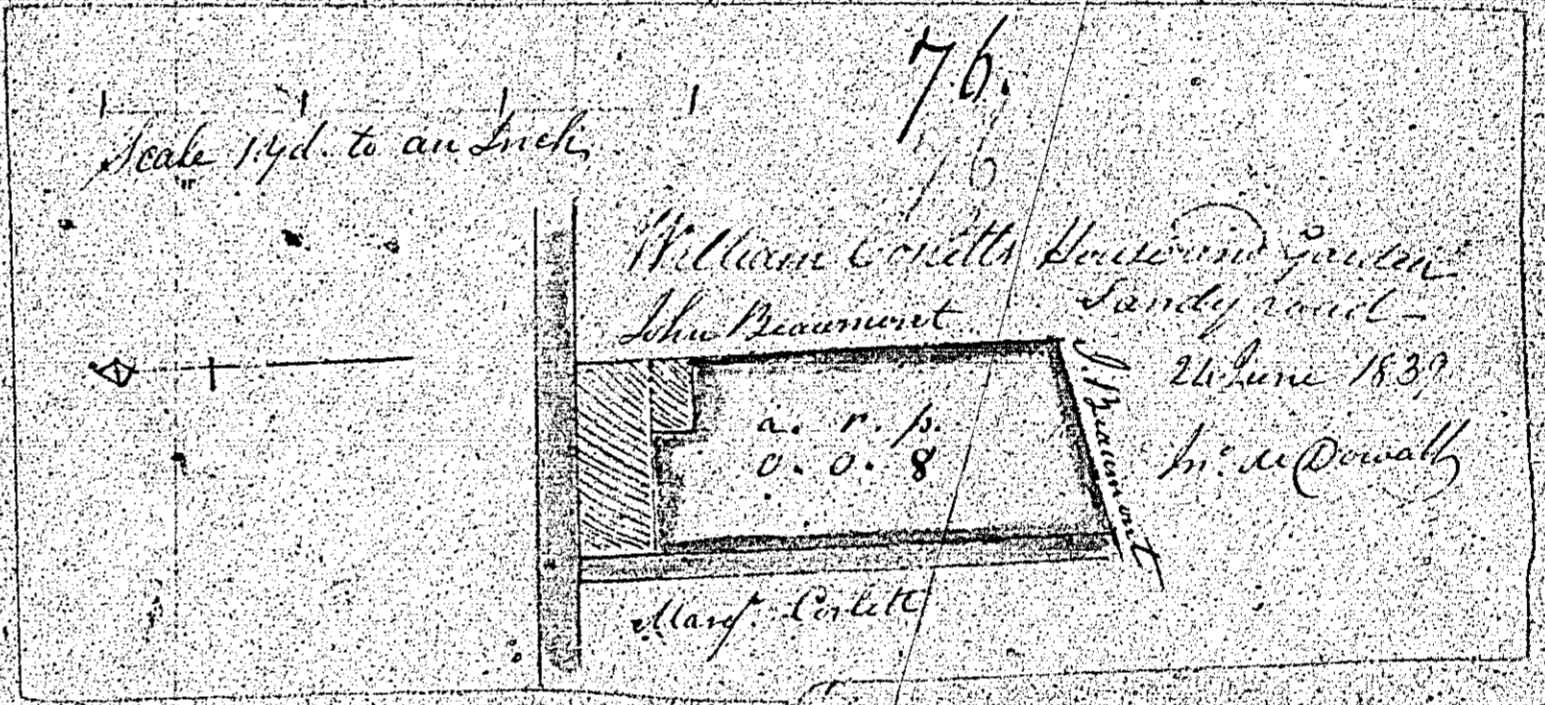 76.
76
Scale 1.yd. to an Inch
William Corletts House and Garden
Sandy road -
John Beaumont
24 June 183
J. Beaumont
a. r. p.
0. 0. 8
Jno. McDowall
Margt. Corlett